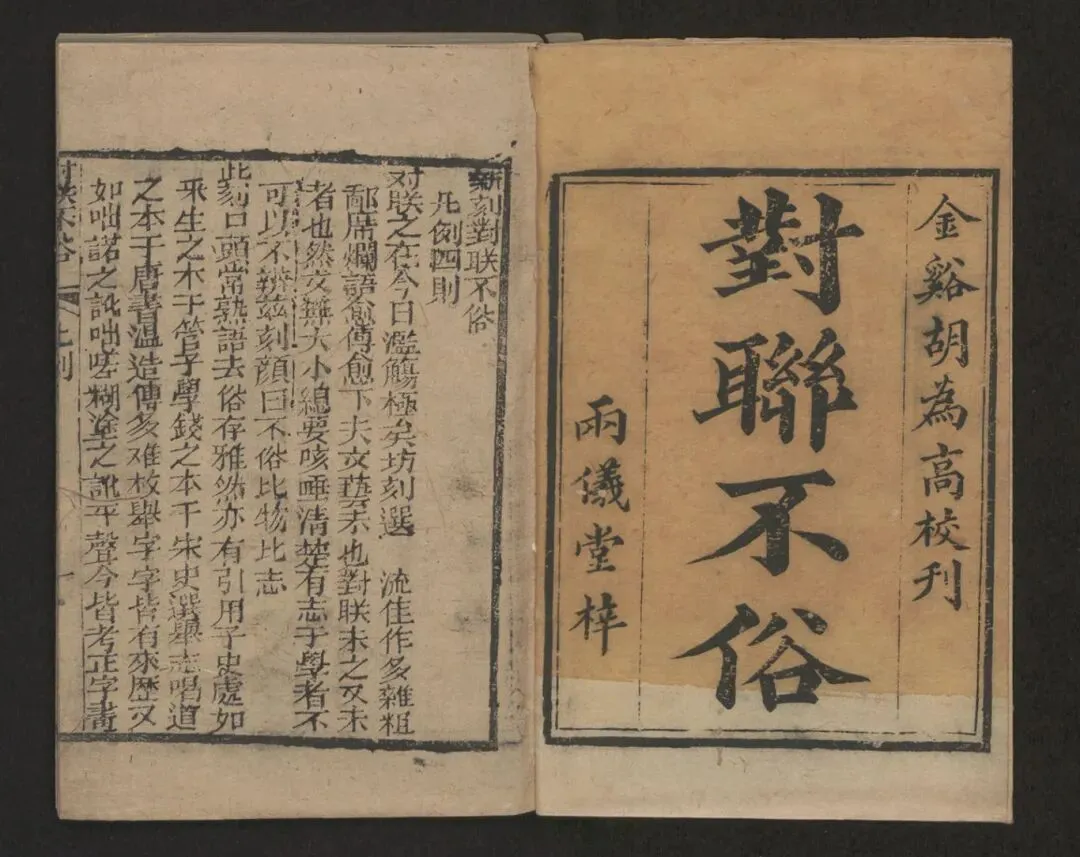 金谿胡為高校刊
對聯不俗
兩儀堂梓
新刻對联不俗
凡例四則
对联之在今日濫觴極矣坊刻選 流佳作多雜粗
鄙席爛語愈傳愈下夫文藝末也對联末之又末
者也然文無大小總要咳唾清楚有志于學者不
可以不辨兹刻顔曰不俗比物比志
此刻口頭常熟語去俗存雅然亦有引用子史處如
乘生之本于管子學錢之本于宋史選舉志唱道
之本于唐書溫造傳多难枚舉字字皆有來歷又
如咄諾之訛咄嗟糊塗之訛平聲今皆考正字畵